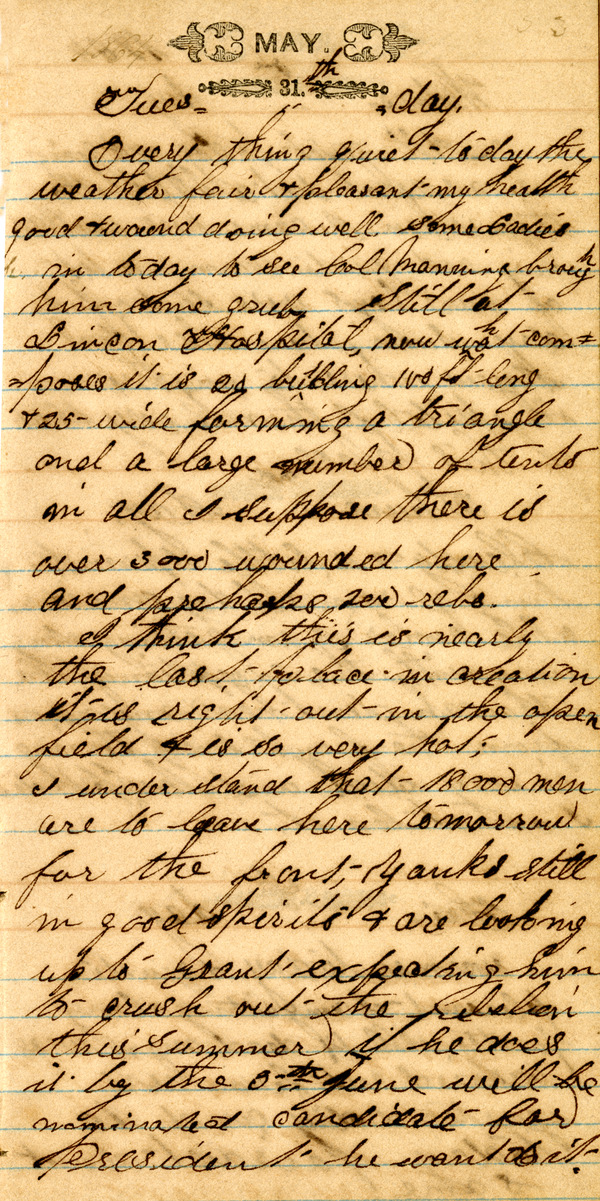 MAY.
31.th
Tues= " =day.
Every thing quiet to day the
weather fair & pleasant my health
good & wound doing well some Ladies
in today to see Col Manning brough
him some grub Still at
Lincon Hospital, now what com=
=poses it is 28 building 108 ft leng
& 25 wide forming a triangle
and a large number of tents
in all I suppose there is
over 3000 wounded here
and prehaps 200 rebs.
I think this is nearly
the last place in creation
it is right out in the open
field & is so very hot;
I under stand that 18000 men
are to leave here tomorrow
for the front, Yanks still
in good spirits & are looking
up to Grant expecting him
to crush out the rebelion
this Summer if he does
it by the 5th June will be
nominated candidate for
President he wants it.